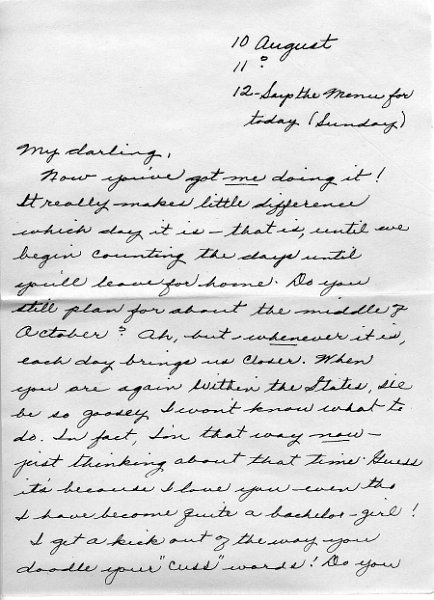 10 August
11 ?
12 - Says the Menu for
today (Sunday)
My darling,
Now you've got me doing it!
It really makes little difference
which day it is - that is, until we
begin counting the days until
you'll leave for home. Do you
still plan for about the middle of
October? Ah, but whenever it is,
each day brings us closer. When
you are again within the States, I'll
be so goosey I won't know what to
do. In fact, I'm that way now -
just thinking about that time. Guess
it's because I love you - even tho
I have become quite a bachelor-girl!
I get a kick out of the way you
doodle your "cuss" words! Do you